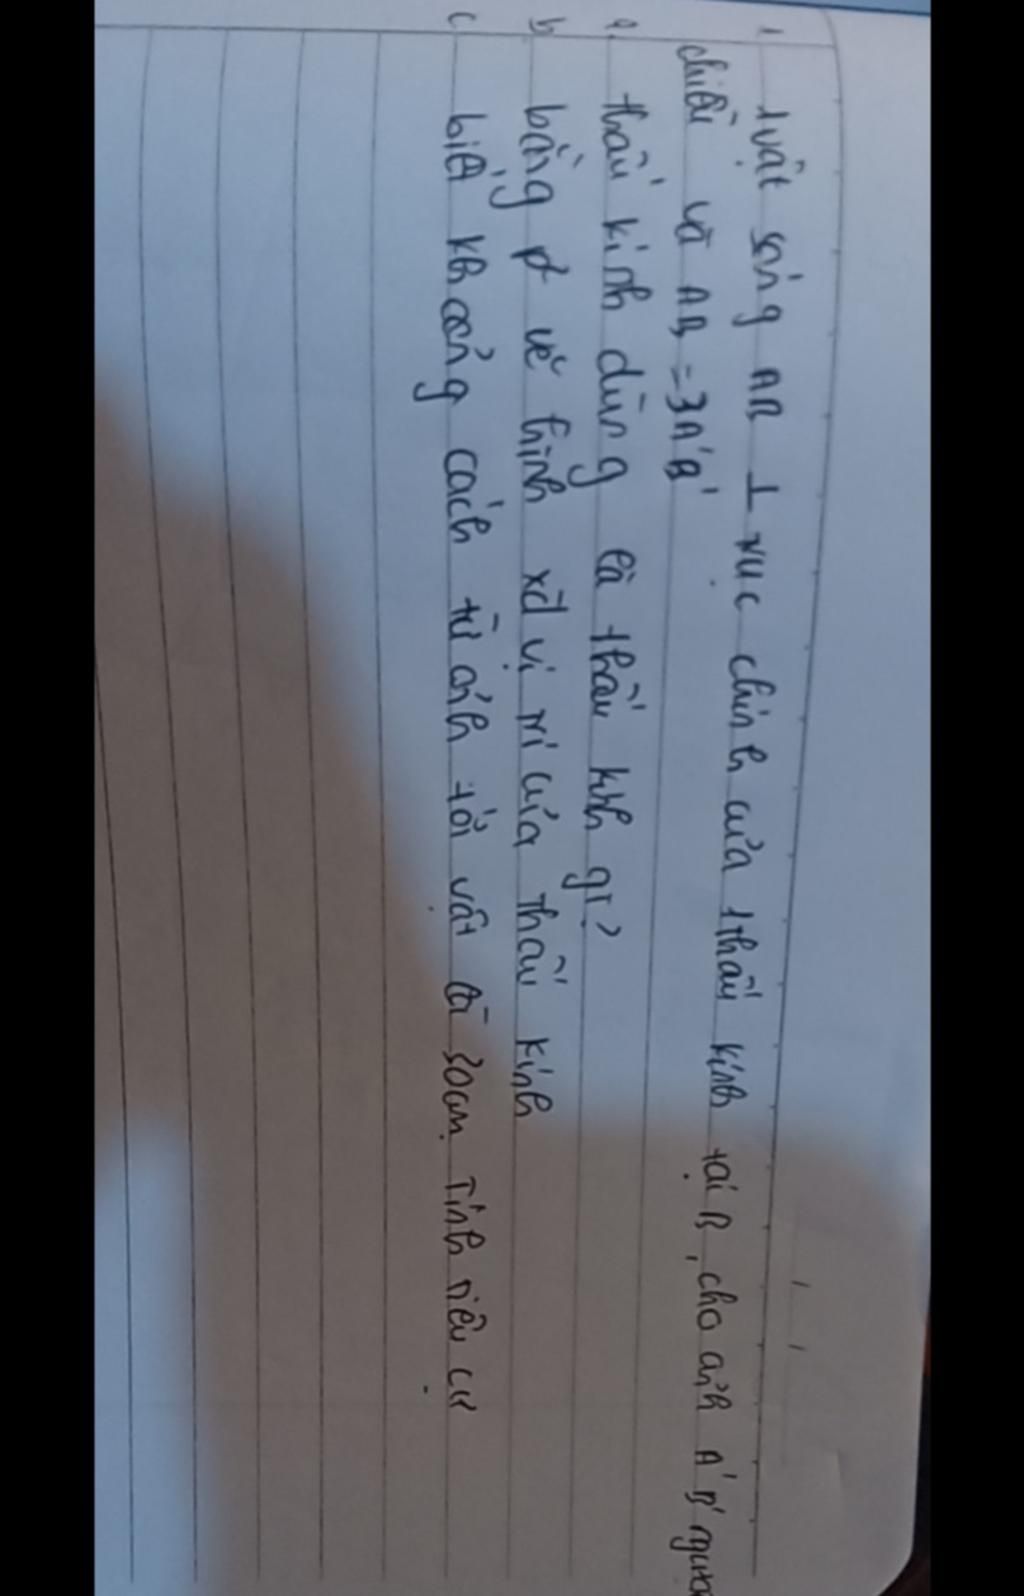 1 1 vật sáng AB ⊥ trục chính của 1 thấu kính tại B, cho ảnh A'B' ngược
chiều và AB = 3A'B'
a. thấu kính dùng là thấu kính gì?
b bằng pt vẽ hình xđ vị trí của thấu kính
c biết khoảng cách từ ảnh tới vật là 80cm. Tính tiêu cự